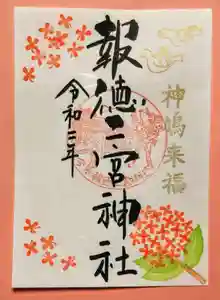 神 来福
報徳二宮神社
令和 年